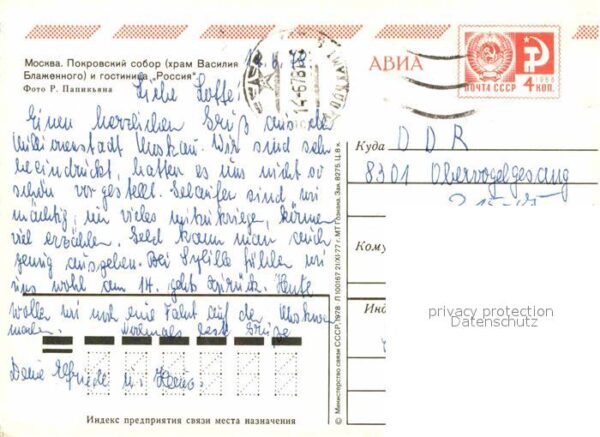 Москва. Покровский собор (храм Василия
Блаженного) и гостиница „Россия".
Фото Р. Папикьяна
АВИА
1966
ПОЧТА СССР
4 КОП.
14-6 78
Liebe Lotte!
Einen herzlichen Gruß aus der
Millionenstadt Moskau. Wir sind sehr
beeindruckt, hatten es uns nicht so
schön vorgestellt. Gelaufen sind wir
mächtig, um vieles mitzukriegen, können
viel erzählen. Geld kann man auch
genug ausgeben. Bei Sybille fühlen wir
uns wohl am 14. gehts zurück. Heute
wollen wir noch eine Fahrt auf der Moskwa
machen. Nochmals beste Grüße
Deine Elfriede u. Heinz.
Куда DDR
8301 Obervogelgesang
Кому
Инд
privacy protection
Datenschutz
© Министерство связи СССР, 1978 Л 100167 21/XI-77 г. МТ Гознака. Зак. 8275. Ц. 8 к.
Индекс предприятия связи места назначения